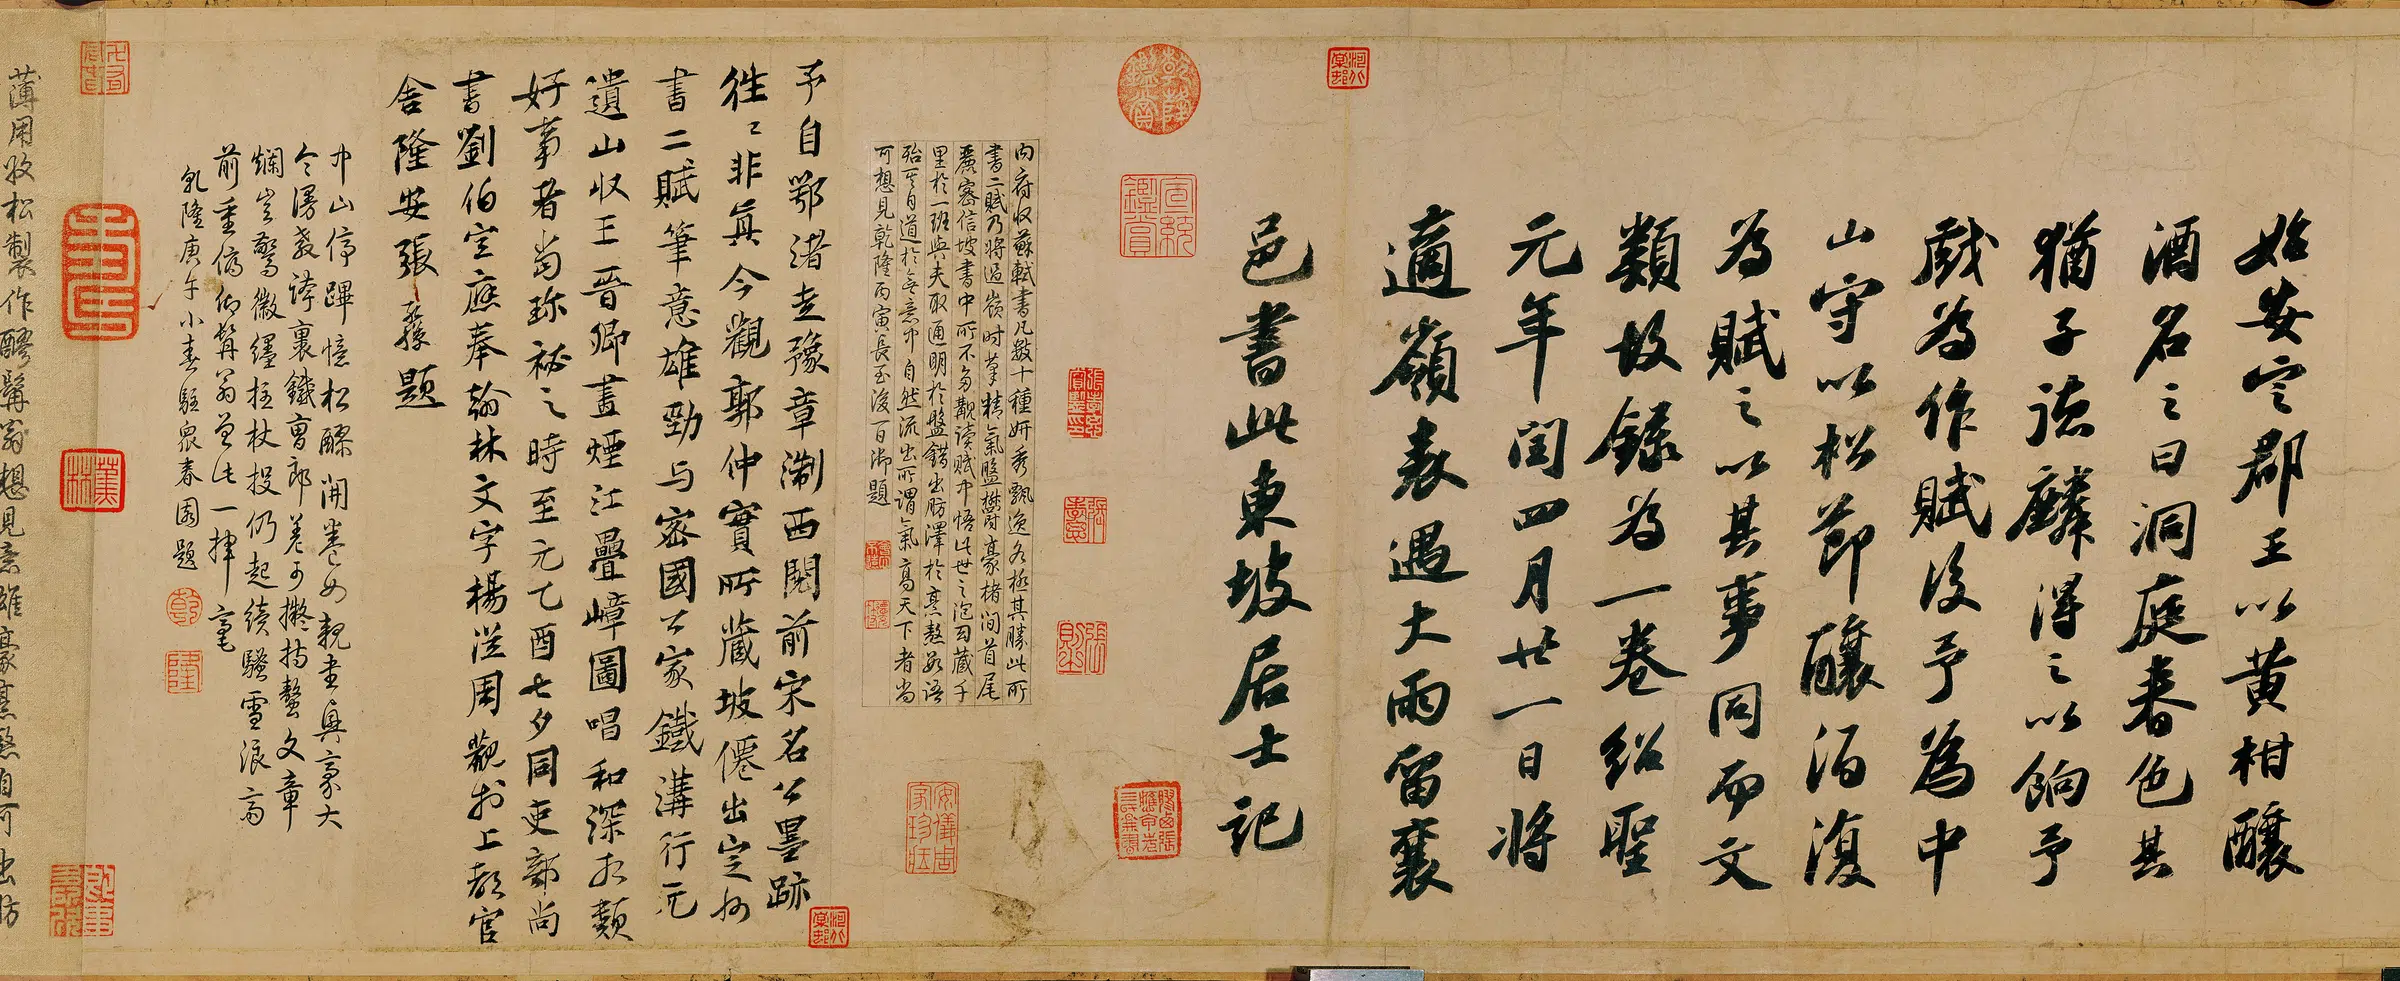 始安定郡王以黃柑釀
酒名之曰洞庭春色其
猶子德麟得之以餉予
戲為作賦後予為中
山守以松節釀酒復
為賦之以其事同而文
類故錄為一卷紹聖
元年閏四月廿一日將
適嶺表遇大雨留襄
邑書此東坡居士記
內府收蘇軾書凡數十種妍秀飄逸各極其勝此所
書二賦乃將過嶺時筆精氣盤欝豪楮間首尾
麗密信坡書中所不多觀讀賦中悟此世之泡幻藏千
里於一班與夫取通明於盤錯出肪澤於烹熬數語
殆其自道於無意中自然流出所謂氣高天下者尚
可想見乾隆丙寅長至後一日御題
予自鄂渚走豫章淛西閱前宋名公墨跡
往々非真今觀郭仲實所藏坡僊出定州
書二賦筆意雄勁与密國公家鐵溝行元
遺山收王晉卿畫煙江疊嶂圖唱和深相類
好事者尚珎祕之時至元乙酉七夕同吏部尚
書劉伯宣應奉翰林文字楊從周觀於上都官
舍隆安張孫題
中山停蹕憶松醪開卷如親書興豪大
令漫教誇裹鐵曹郎差可擬持螯文章
爛豈驚徽纆拄杖投仍起續騷雪浪齋
前重倚仰髯翁曾此一揮毫
乾隆庚午小春駐眾春園題
薄用牧松製作醪髯翁想見意雄豪烹熬自可出肪